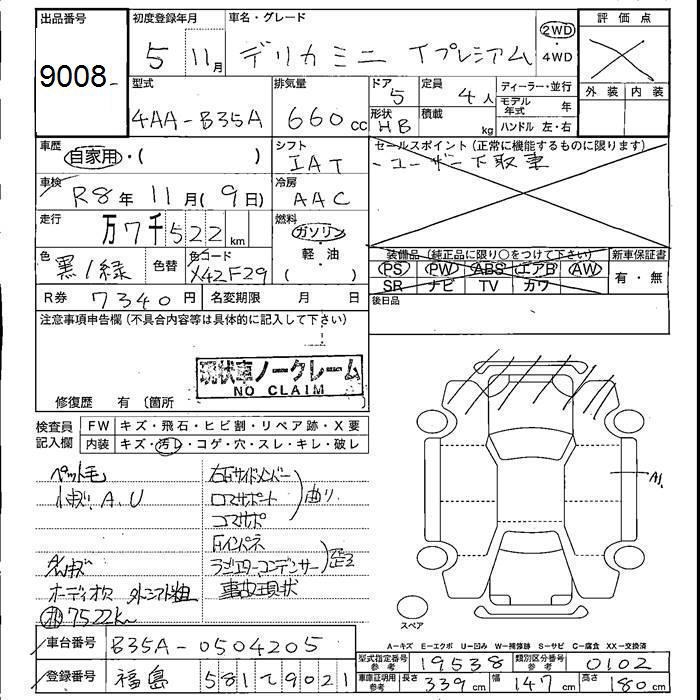 出品番号
9008
初度登録年月
5 11月
車名・グレード
デリカミニ Tプレミアム
2WD
・
4WD
評価点
外装 内装
型式
4AA-B35A
排気量
660cc
ドア 5
形状 HB
定員 4人
積載 kg
ディーラー・並行
モデル年式 年
ハンドル 左・右
車歴
自家用・( )
シフト
IAT
セールスポイント(正常に機能するものに限ります)
ユーザー下取車
車検
R8年11月(9日)
冷房
AAC
走行
万7千522km
燃料
ガソリン
・
軽・油
( )
色
黒/緑
色替
色コード
X42F29
装備品(純正品に限り○をつけて下さい)
PS PW ABS エアB AW
SR ナビ TV カワ
新車保証書
有・無
R券 7340円
名変期限 月 日
後日品
注意事項申告欄(不具合内容等は具体的に記入して下さい)
現状車ノークレーム
NO CLAIM
修復歴 有〔箇所 〕
検査員
記入欄
FW キズ・飛石・ヒビ割・リペア跡・X要
内装 キズ・汚レ・コゲ・穴・スレ・キレ・破レ
ペット毛
小キズ、A、U
オーディオ欠
7522km
右Fサイドメンバー
ロマサポート
コマサポ
曲り
Fインパネ
ラジエターコンデンサー
歪ミ
事故現状
A1
スペア
A-キズ E-エクボ U-凹み W-補修跡 S-サビ C-腐食 XX-交換済
車台番号 B35A-0504205
登録番号 福島 581 9021
型式指定番号 参考 19538
類別区分番号 参考 0102
車庫証明用 参考 長さ 339cm 幅 147cm 高さ 180cm